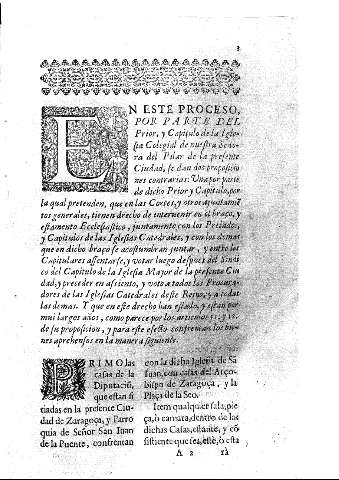 EN ESTE PROCESO,
POR PARTE DEL
Prior, y Capitulo de la Igle-
sia Colegial de nuestra Seño-
ra del Pilar de la presente
Ciudad, se dan dos proposicio
nes contrarias: Una por parte
de dicho Prior y Capitulo, por
la qual pretenden, que en las Cortes, y otros ajuntamiē
tos generales, tienen drecho de intervenir en el braço, y
estamento Ecclesiastico, juntamente con los Prelados,
y Capitulos de las Iglesias Catedrales, y con los demas
que en dicho braço se acostumbran juntar, y entre los
Capitulares assentarse, y votar luego despues del Sindi
co del Capitulo de la Iglesia Mayor de la presente Ciu
dad, y preceder en assiento, y voto a todos los Procura-
dores de las Iglesias Catedrales deste Reyno, y a todas
las demas. Y que en este drecho han estado, y estan por
mui largos años, como parece por los articulos
de su proposicion, y para este efecto confrentan los bie-
nes aprehensos en la manera siguiente.
PRIMO las
casas de la
Diputació,
que estan si
tiadas en la presente Ciu-
dad de Zaragoça, y Parro
quia de Señor San Juan
de la Puente, confrentan
con la dicha Iglesia de Sã
Juan, con casas del Arço-
bispo de Zaragoça, y la
Plaça de la Seo.
Item qualquier sala, pie
ça, ò camara, dentro de las
dichas casas, estante, y cō
sistiente que sea, este, ò esta
A 2 rà